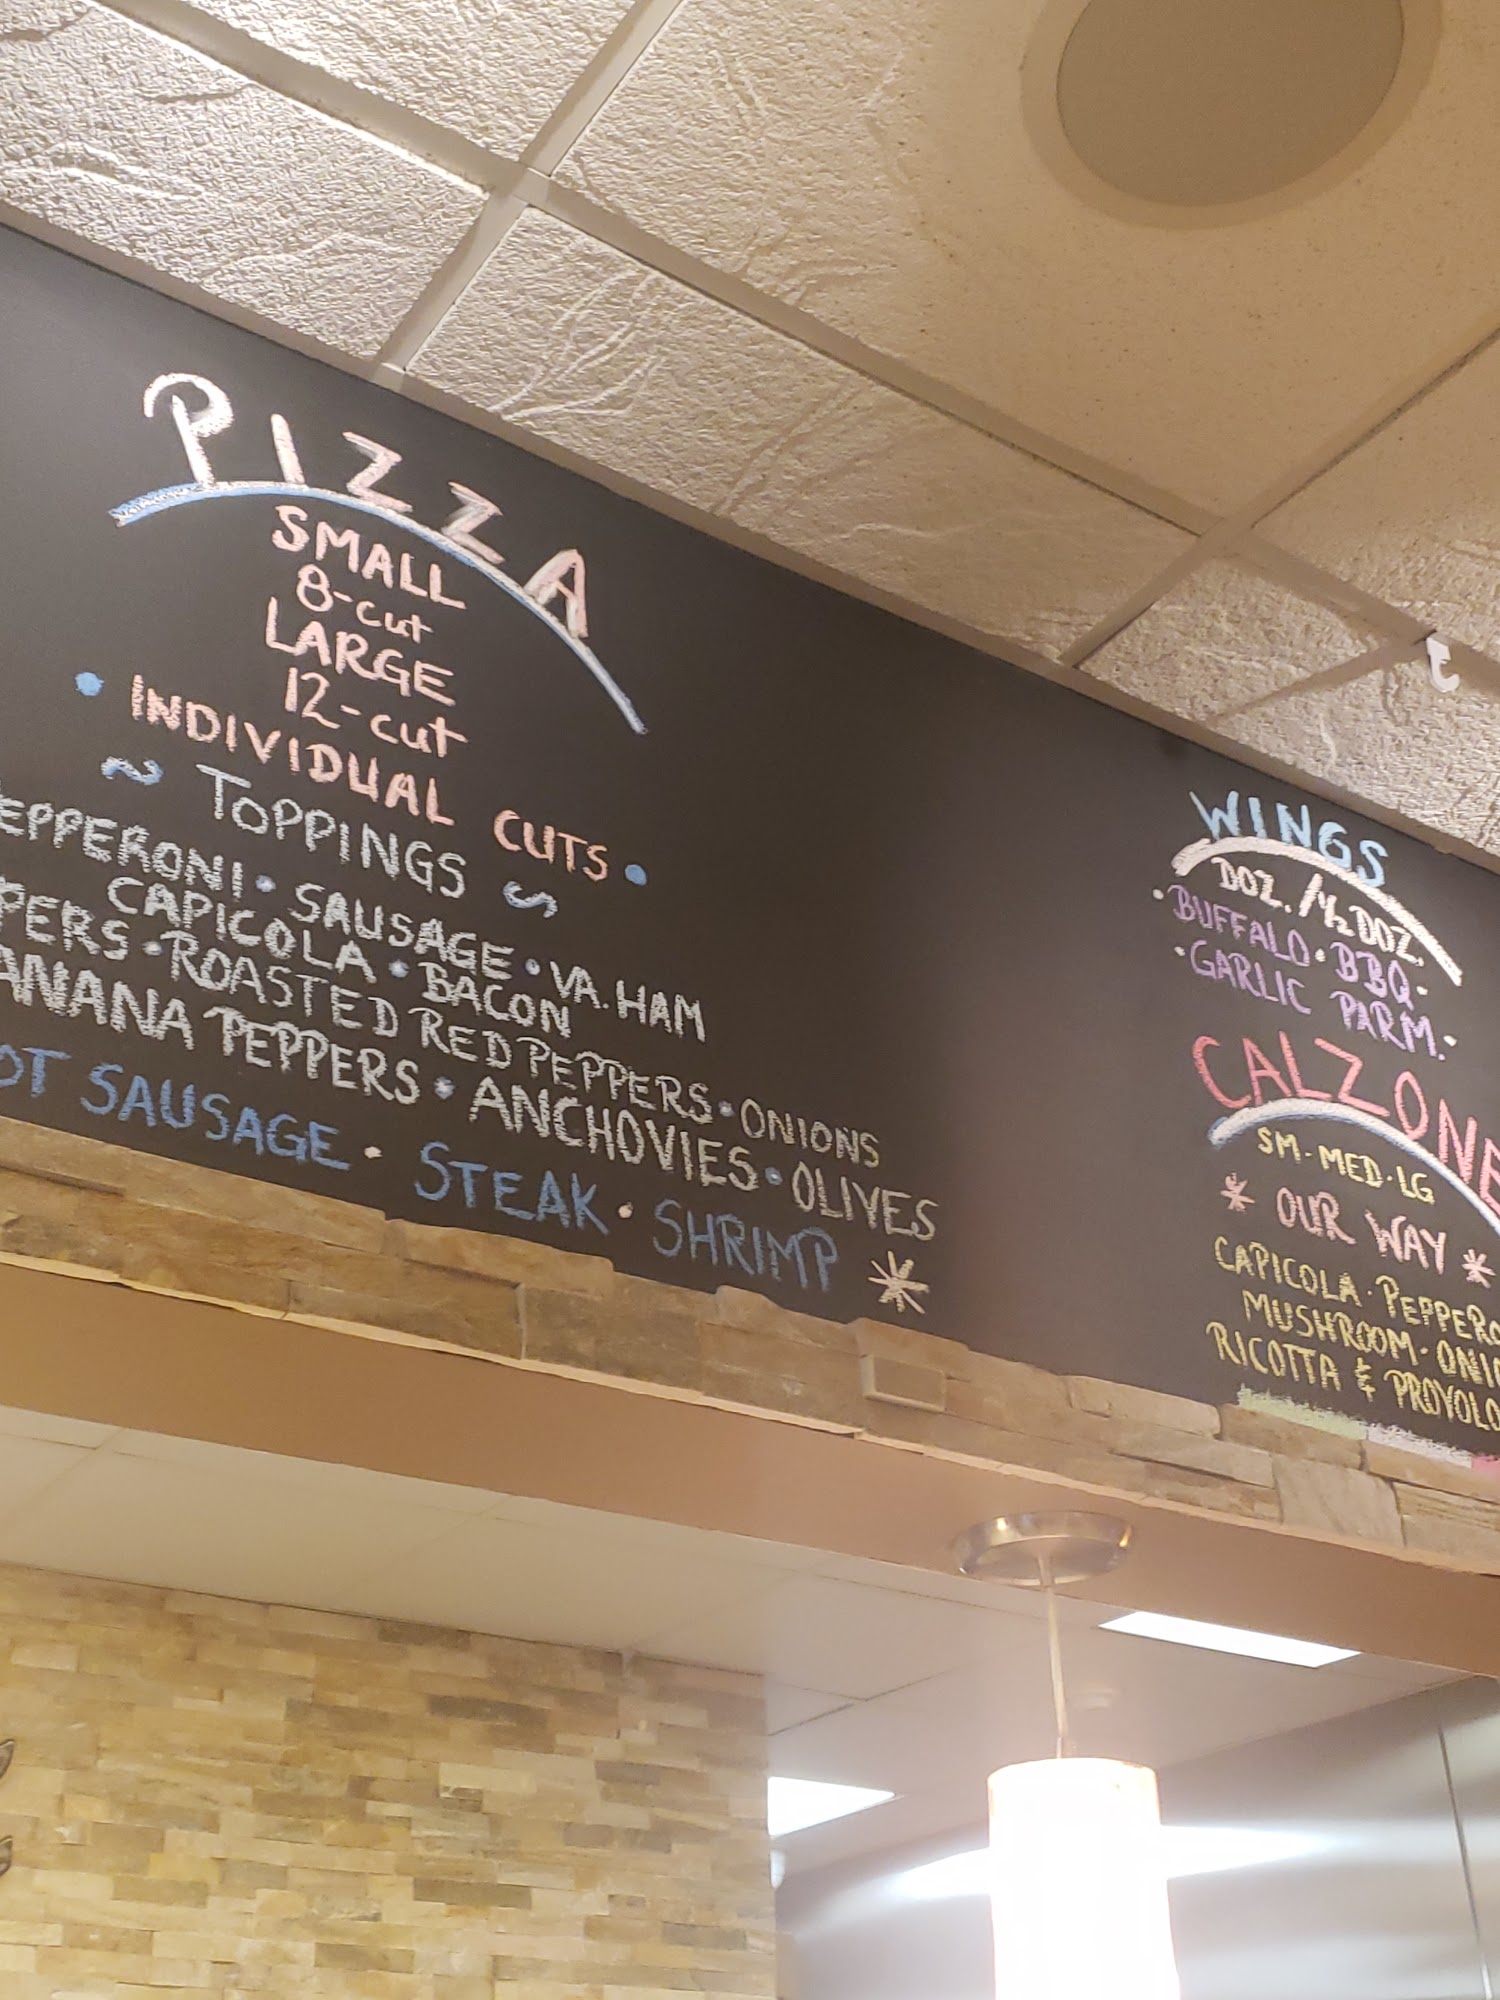 PIZZA
SMALL
8-cut
LARGE
12-cut
• INDIVIDUAL CUTS •
~ TOPPINGS ~
EPPERONI • SAUSAGE • VA. HAM
CAPICOLA • BACON
PERS • ROASTED RED PEPPERS • ONIONS
ANANA PEPPERS • ANCHOVIES • OLIVES
OT SAUSAGE • STEAK • SHRIMP *
WINGS
DOZ. / ½ DOZ.
• BUFFALO • BBQ •
• GARLIC PARM. •
CALZONE
SM • MED • LG
* OUR WAY *
CAPICOLA • PEPPERO
MUSHROOM • ONI
RICOTTA & PROVOLO